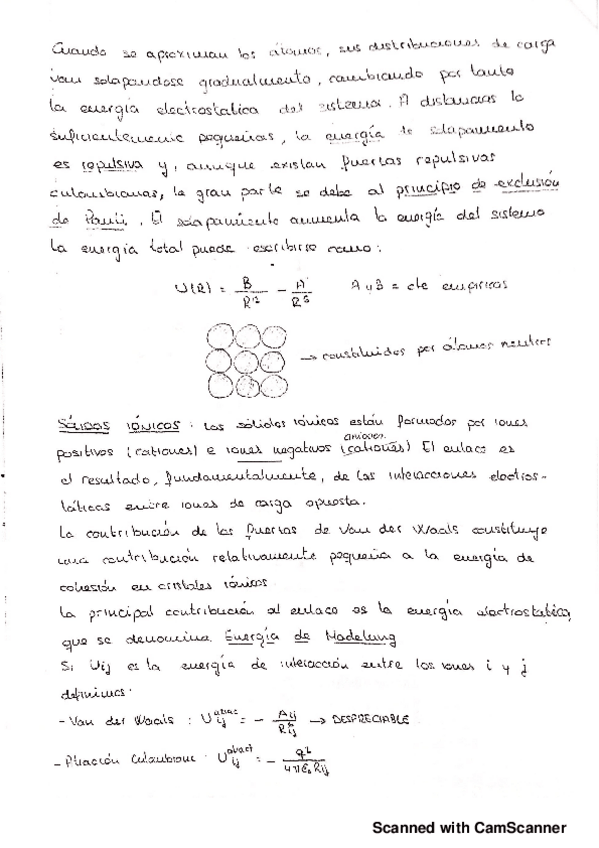 Cuando se aproximan los átomos, sus distribuciones de carga
van solapandose gradualmente, cambiando por tanto
la energía electrostatica del sistema. A distancias lo
suficientemente pequeñas, la energía de solapamiento
es repulsiva y, aunque existan fuerzas repulsivas
culombianas, la gran parte se debe al principio de exclusión
de Pauli. El solapamiento aumenta la energía del sistema
la energía total puede escribirse como:
U(R) = B/R¹² - A/R⁶ A y B = cte empiricas
→ constituidos por átomos neutros
SÓLIDOS IÓNICOS: los sólidos iónicos están formados por iones
aniones
positivos (cationes) e iones negativos (cationes) El enlace es
el resultado, fundamentalmente, de las interacciones electros-
táticas entre iones de carga opuesta.
La contribución de las fuerzas de Van der Waals constituye
una contribución relativamente pequeña a la energía de
cohesión en cristales iónicos
La principal contribución al enlace es la energía electrostatica,
que se denomina Energía de Madelung
Si Uij es la energía de interacción entre los iones i y j
definimos:
- Van der Waals: Uij^atrac = - Aij/Rij⁶ → DESPRECIABLE
Culombiana: Uij^atract = - q²/4πε₀Rij
Scanned with CamScanner